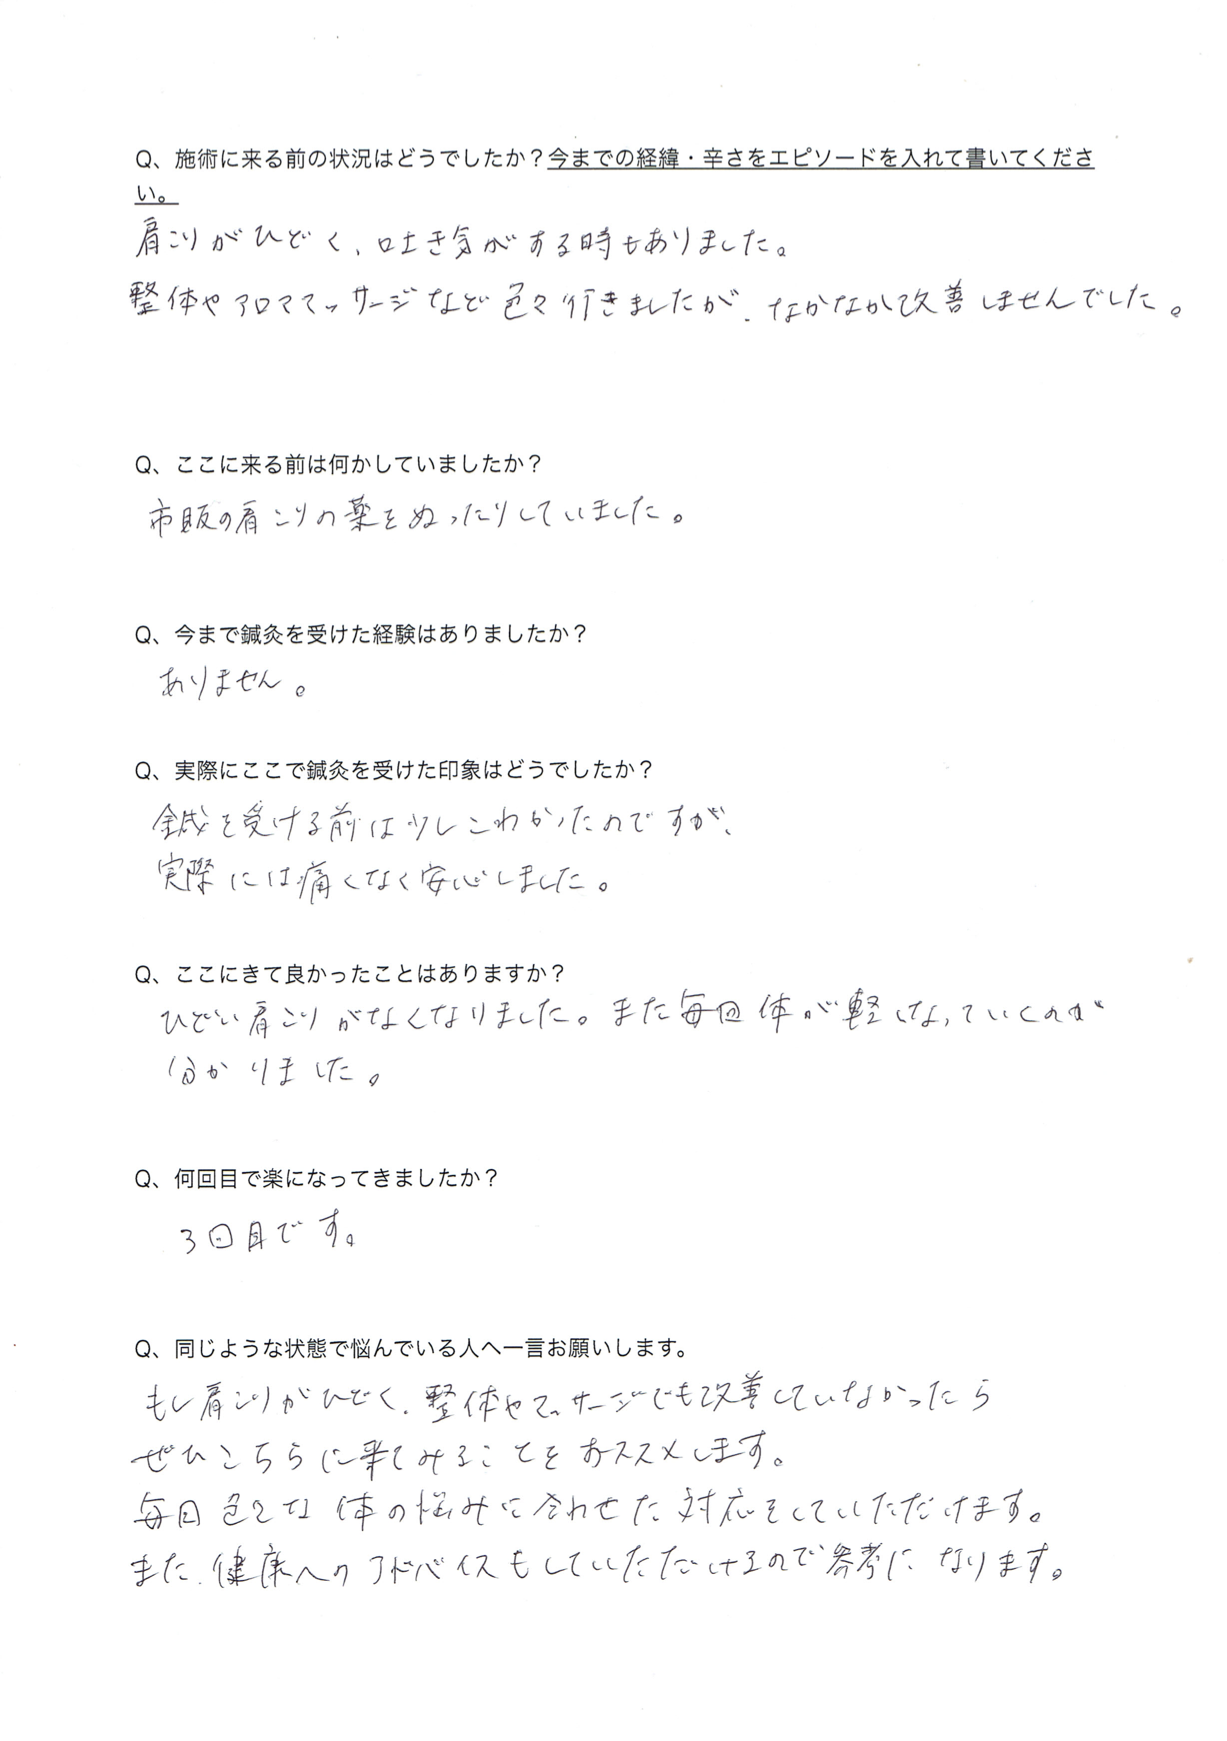 Q、施術に来る前の状況はどうでしたか？今までの経緯・辛さをエピソードを入れて書いてくださ
い。
肩こりがひどく、吐き気がする時もありました。
整体やアロママッサージなど色々行きましたが、なかなか改善しませんでした。
Q、ここに来る前は何かしていましたか？
市販の肩こりの薬をぬったりしていました。
Q、今まで鍼灸を受けた経験はありましたか？
ありません。
Q、実際にここで鍼灸を受けた印象はどうでしたか？
鍼を受ける前は少しこわかったのですが、
実際には痛くなく安心しました。
Q、ここにきて良かったことはありますか？
ひどい肩こりがなくなりました。また毎回体が軽くなっていくのが
分かりました。
Q、何回目で楽になってきましたか？
3回目です。
Q、同じような状態で悩んでいる人へ一言お願いします。
もし肩こりがひどく、整体やマッサージでも改善していなかったら
ぜひこちらに来てみることをおススメします。
毎回色々な体の悩みに合わせた対応をしていただけます。
また、健康へのアドバイスもしていただけるので参考になります。